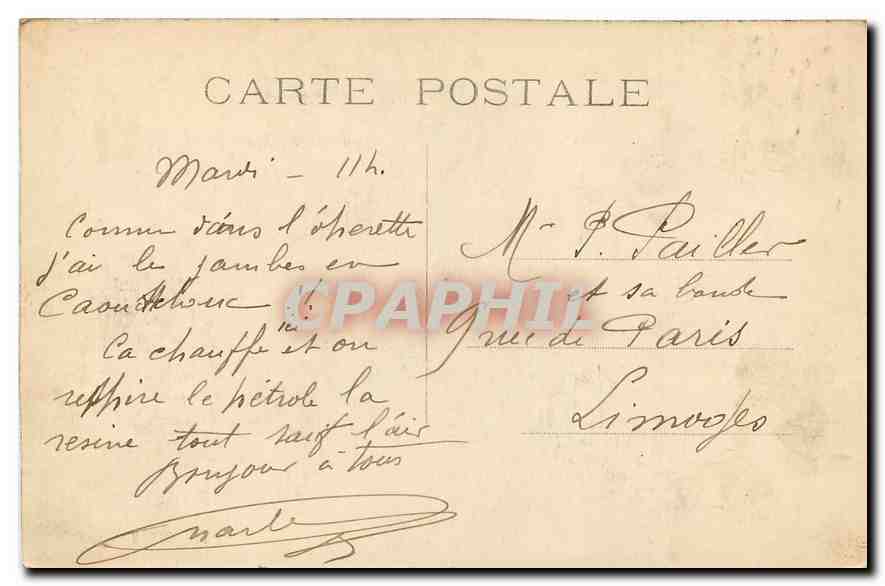 CARTE POSTALE
Mardi - 11 h.
Comme dans l'óperette
j'ai les jambes en
Caoutchouc !!
Ca chauffe ici et on
respire le pétrole la
resine tout sauf l'air
Bonjour à tous
Mr P. Pailler
et sa bande
9 rue de Paris
Limoges
CPAPHIL